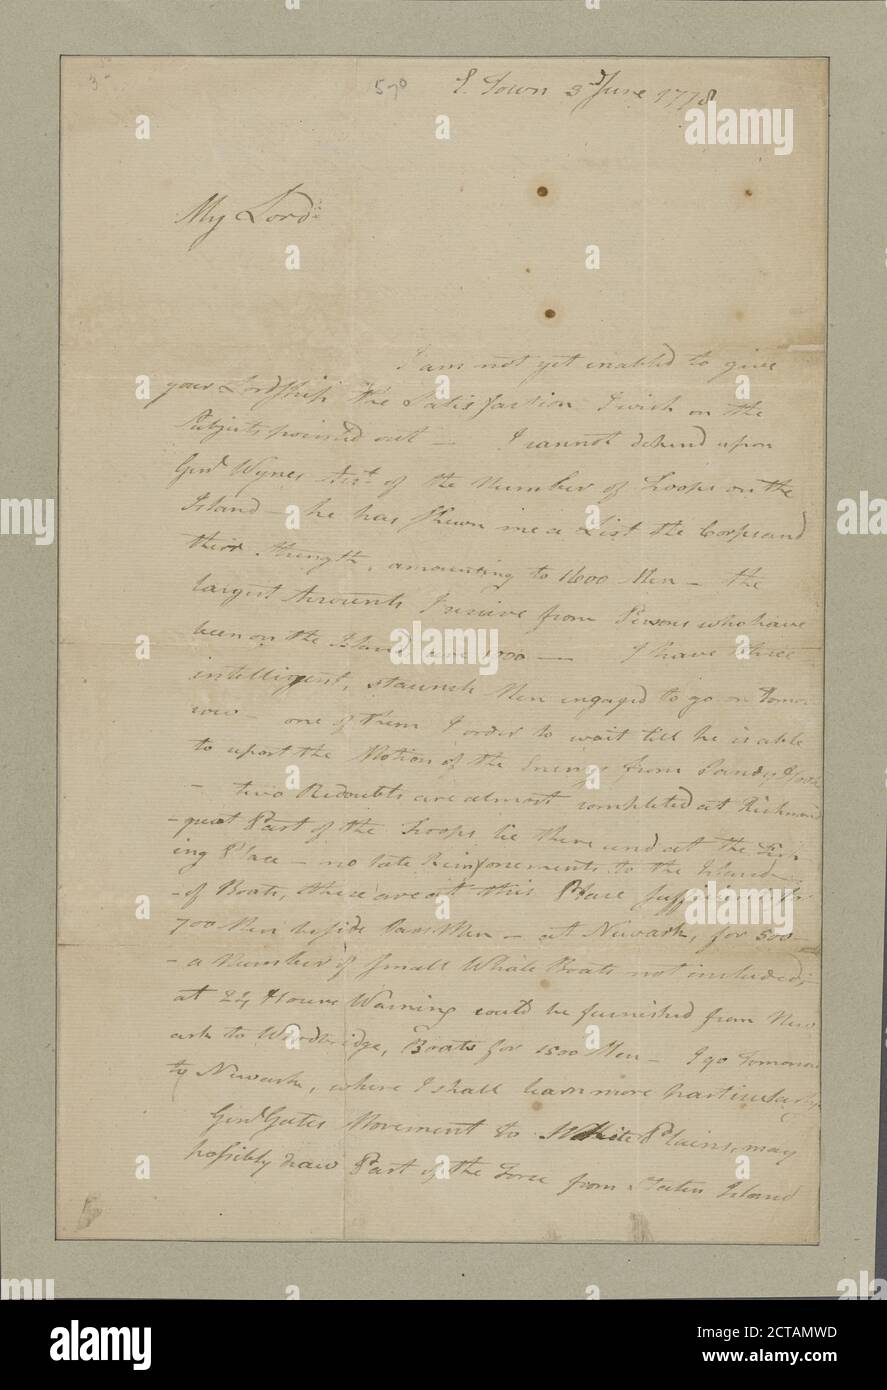 3
570
E. Town 3d June 1778
My Lord
I am not yet enabled to give
your Lordship the Satisfaction I wish on the
Subjects pointed out — I cannot depend upon
Genl. Wynes Acct. of the Number of Troops on the
Island — he has shewn me a List the Corps and
their strength, amounting to 1600 Men — the
largest Accounts I receive from Persons who have
been on the Island are 1000 — I have three
intelligent, staunch Men engaged to go on tomor
row — one of them I order to wait till he is able
to report the Motion of the Enemy from Sandy Hook
— two Redoubts are almost completed at Richmond
— great Part of the Troops lie there and at the
ing Place — no late Reinforcements to the Island
— of Boats, there are at this Place sufficient for
700 Men beside Oars Men — at Newark, for 500 —
— a Number of small Whale Boats not included;
at 24 Hours Warning could be furnished from New
ark to Woodbridge, Boats for 1500 Men — I go tomorrow
to Newark, where I shall learn more particularly
Genl. Gates Movement to White Plains, may
possibly draw Part of the Force from Staten Island
alamy
a
Image ID: 2CTAMWD
www.alamy.com